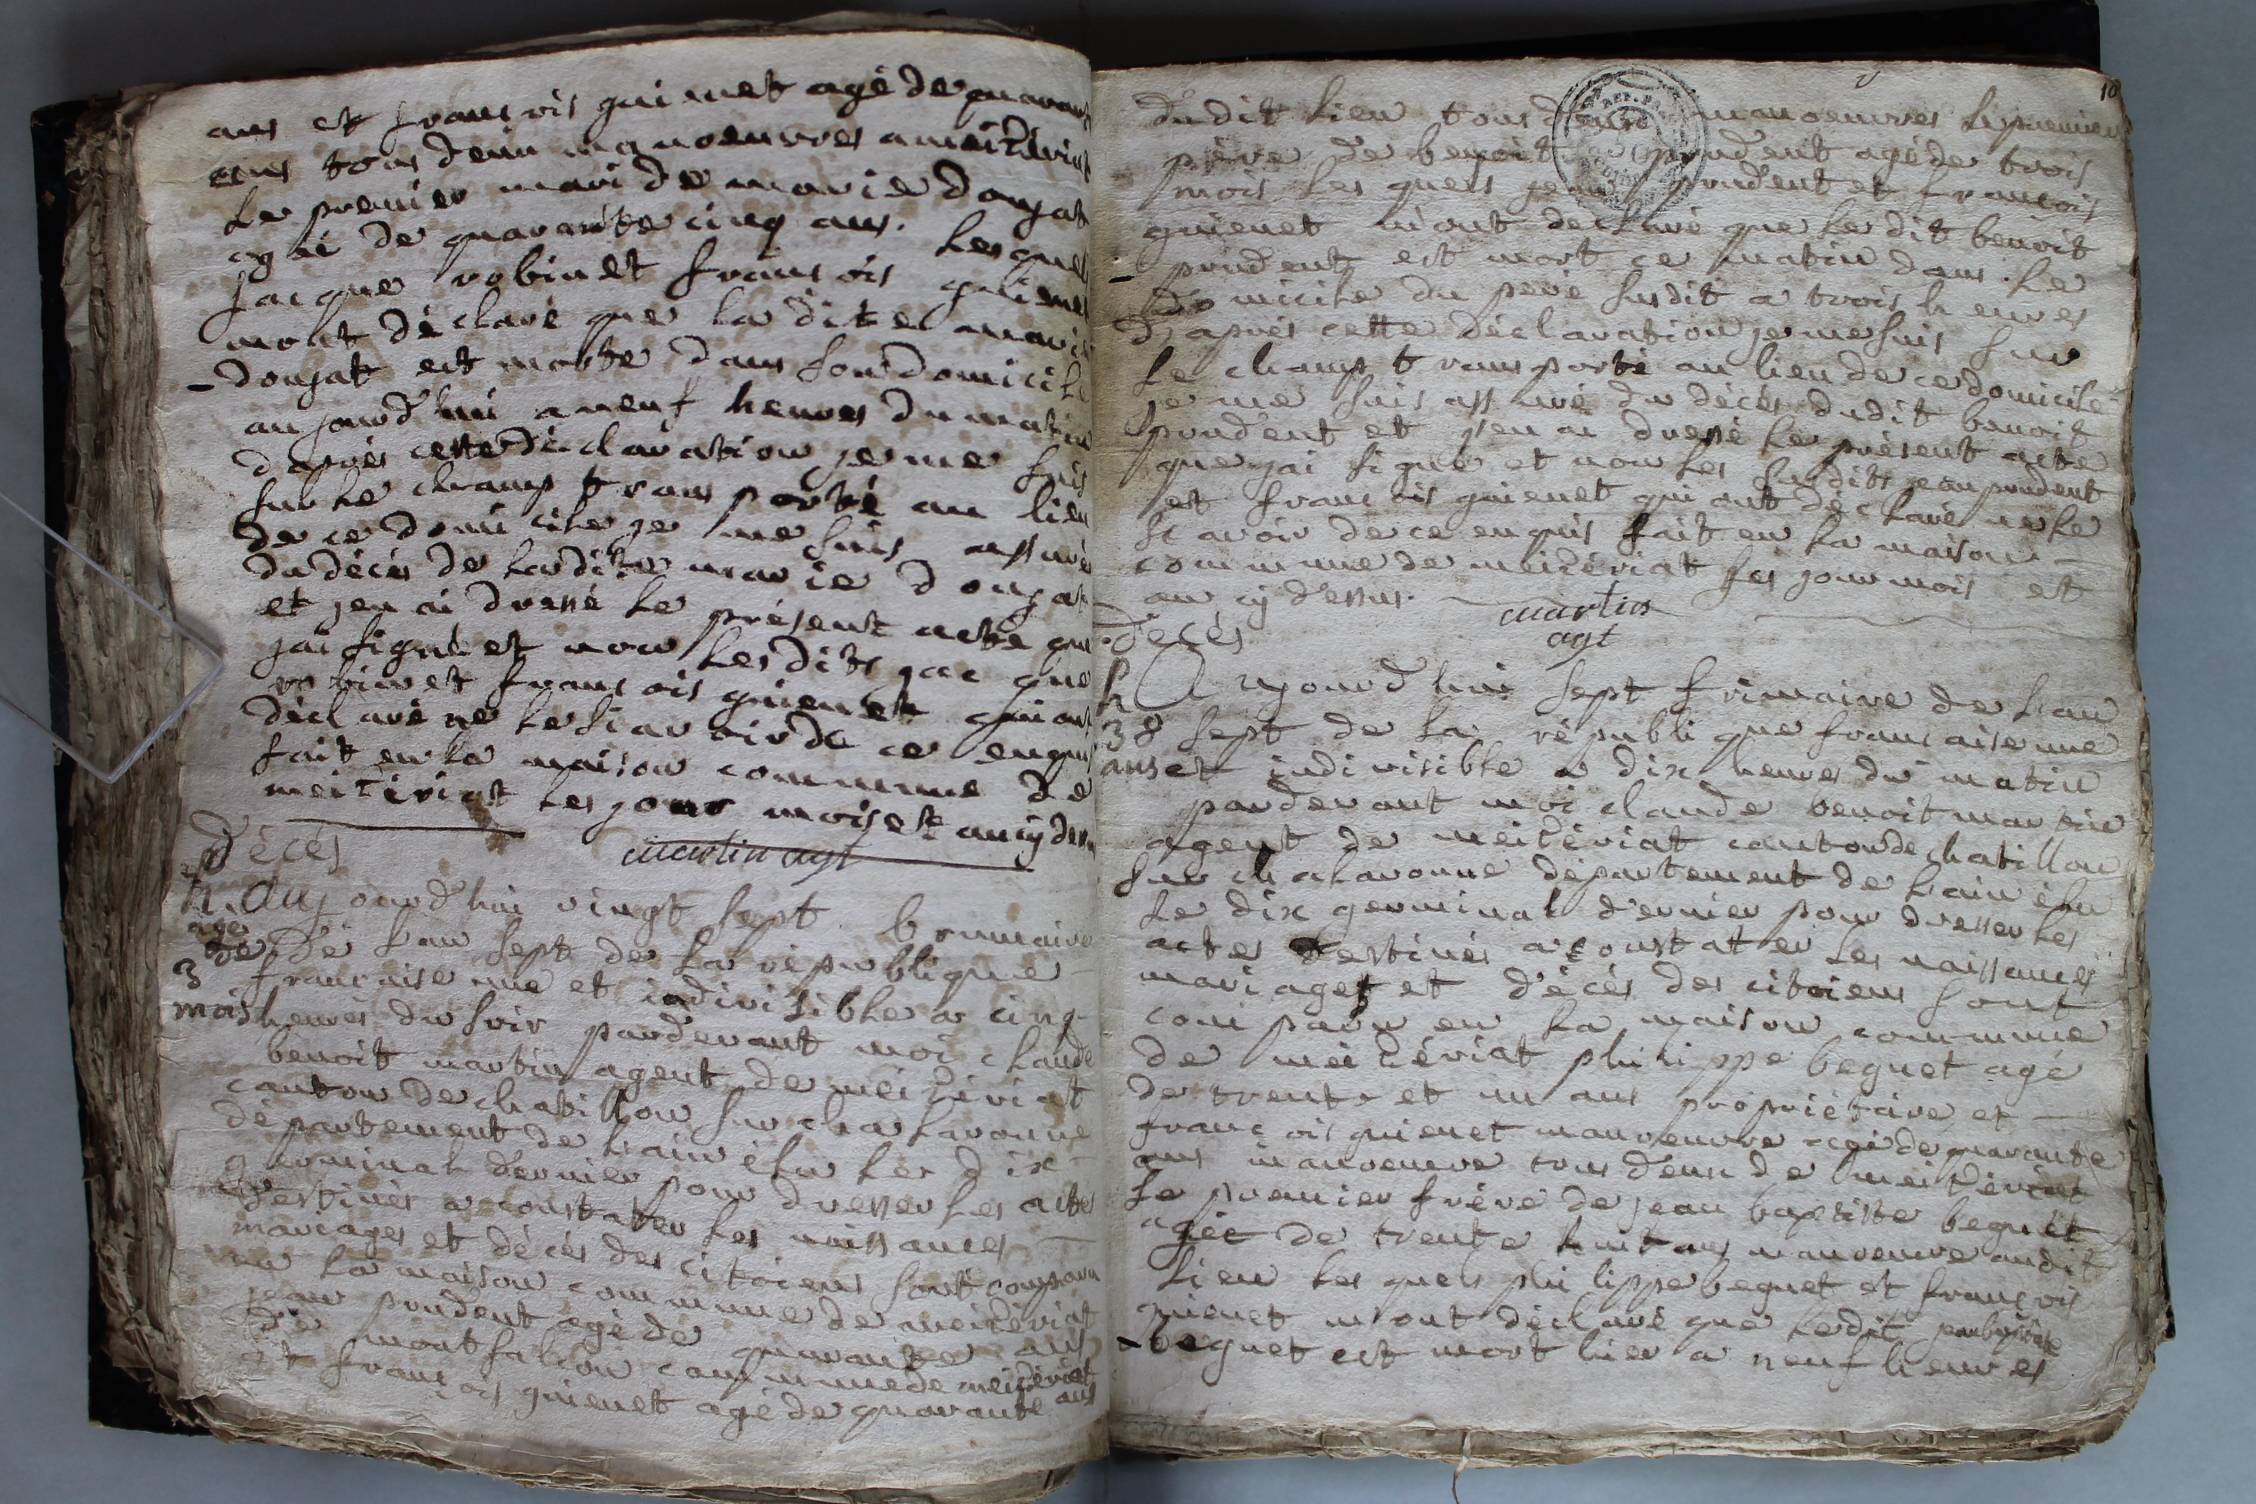 ans et francois guienet agé de quarante
ans tous deux manoeuvres a meizériat
le premier mari de marie doujat
agé de quarante cinq ans. lesquels
jacque robinet francois guienet
mont déclaré que la dite marie
- doujat est morte dans son domicile
aujourd'hui a neuf heures du matin
dapres cette déclaration je me suis
sur le champ transporté au lieu
de ce domicile je me suis assuré
du décés de la dite marie doujat
et jen ai dressé le présent acte que
jai signé et non les dits jacque
robinet francois guienet qui ont
déclaré ne le scavoir de ce enquis
fait en la maison commune de
meizériat les jour mois et an cy dessus
martin agt
décés
h. Aujourd'hui vingt sept brumaire
agé
de de l'an sept de la république
3 francaise une et indivisible a cinq
mois heures du soir pardevant moi claude
benoit martin agent de meizériat
canton de chatillon sur chalaronne
département de l'ain élu le dix
germinal dernier pour dresser les actes
destinés a constater les naissances
mariages et décés des citoiens sont comparu
en la maison commune de meizériat
jean prudent agé de quarante ans
de montfalcon commune de meizériat
et francois guienet agé de quarante ans
10
dudit lieu tous deux manoeuvres le premier
père de benoit prudent agé de trois
mois les quels jean prudent et francois
guienet m'ont déclaré que le dit benoit
- prudent est mort ce matin dans le
domicile du père susdit a trois heures
d'aprés cette déclaration je me suis sur
le champ transporté au lieu de ce domicile
je me suis assuré du décés dudit benoit
prudent et j'en ai dressé le présent acte
que jai signé et non les susdits jean prudent
et francois guienet qui ont déclaré ne le
scavoir de ce enquis fait en la maison
commune de meizériat les jour mois et
an cy dessus.
martin
agt
décés
h Aujourd'hui sept frimaire de l'an
38 sept de la république francaise une
ans et indivisible a dix heures du matin
pardevant moi claude benoit martin
agent de meizériat canton de chatillon
sur chalaronne département de l'ain élu
le dix germinal dernier pour dresser les
actes destinés a constater les naissances
mariages et décés des citoiens sont
comparu en la maison commune
de meizériat philippe beguet agé
de trente et un ans propriétaire et
francois guienet manoeuvre agé de quarante
ans manoeuvre tous deux de meizériat
le premier frère de jean baptiste beguet
agée de trente huit ans manoeuvre audit
lieu les quels philippe beguet et francois
guienet m'ont déclaré que ledit jean baptiste
- beguet est mort hier a neuf heures